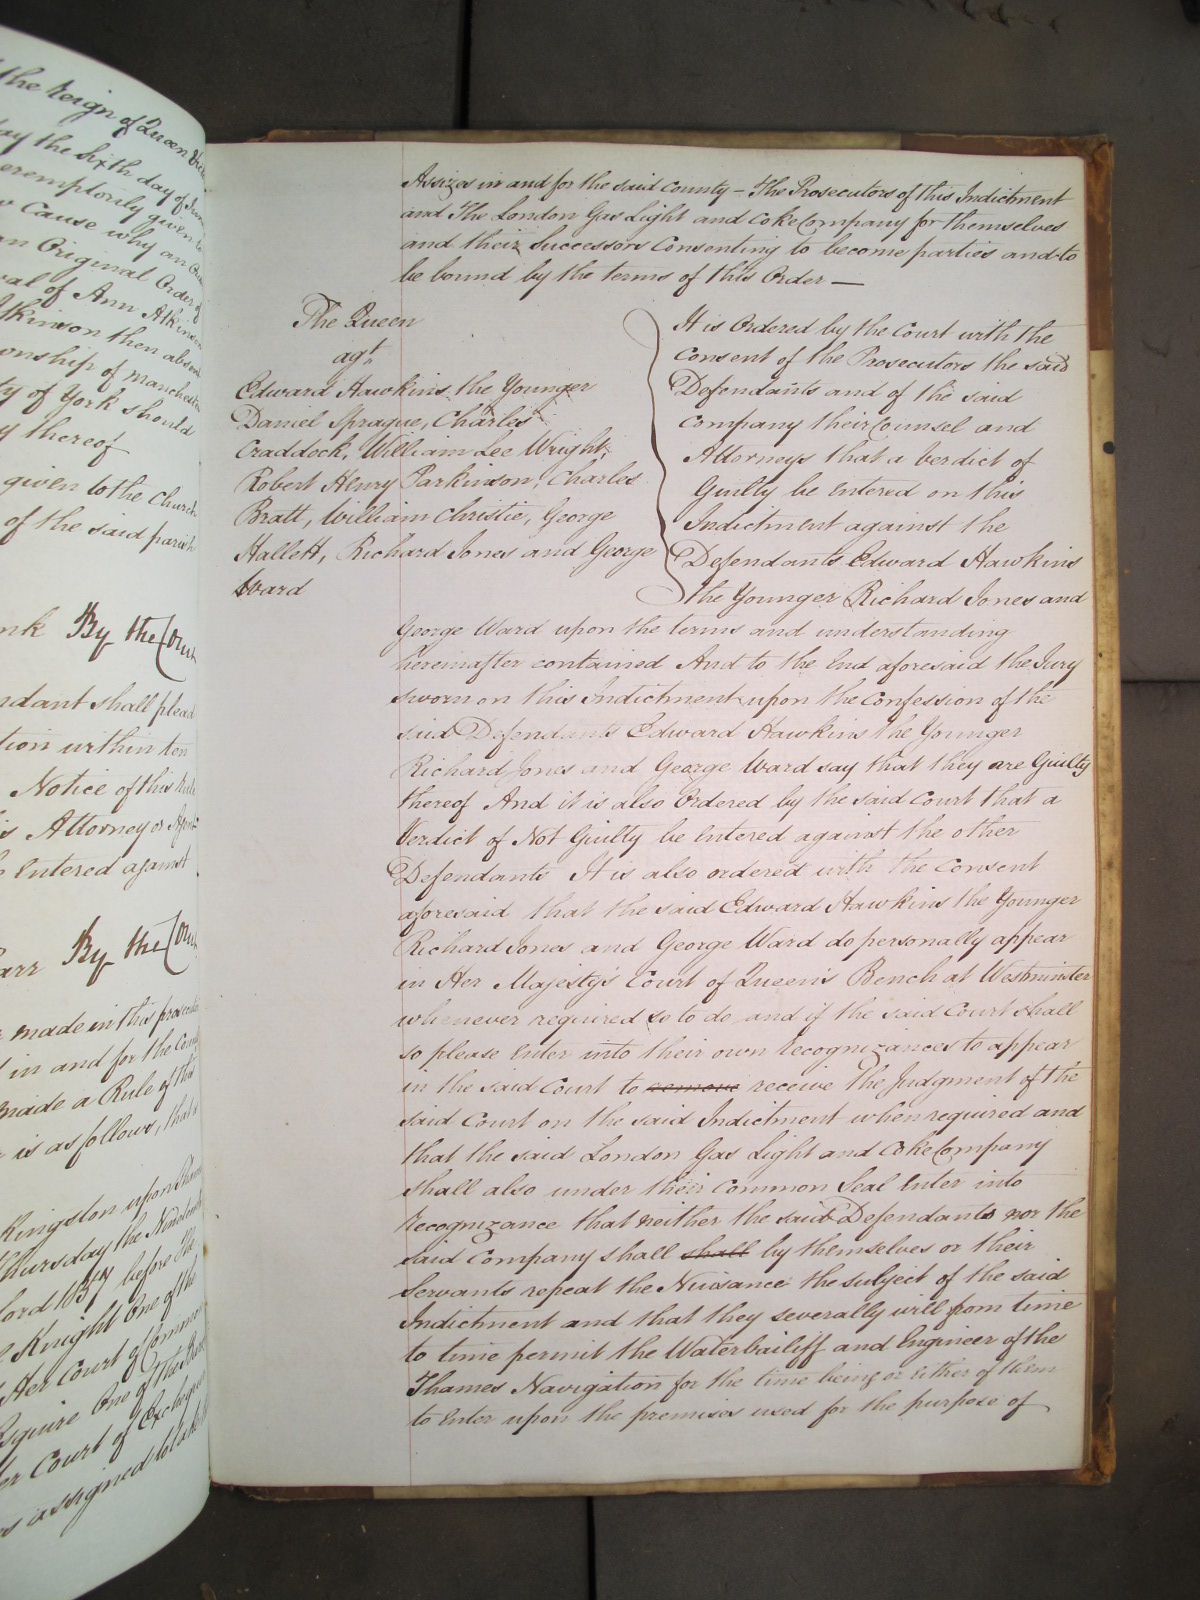 the Reign of Queen
day the Sixth day of June
peremptorily given
Cause why an
an Original Order
val of Ann Atkinson
Atkinson then
onship of Manchester
ty of York should
y thereof
given to the Church
of the said parish
nk By the Court
ndant shall plead
tion within ten
Notice of this Rule
is Attorney or Agent
e Entered against
arr By the Court
made in this prosecution
in and for the County
made a Rule of this
is as follows, that
Kingston upon Thames
Thursday the Nineteenth
Lord 1837 before The
Knight One of the
Her Court of Common
Esquire One of the Barons
er Court of Exchequer
s assigned to take the
Assizes in and for the said County – The Prosecutors of this Indictment
and The London Gas Light and Coke Company for themselves
and their Successors Consenting to become parties and to
be bound by the terms of this Order —
The Queen
agt.
Edward Hawkins the Younger
Daniel Sprague, Charles
Craddock, William Lee Wright,
Robert Henry Parkinson, Charles
Bratt, William Christie, George
Hallett, Richard Jones and George
Ward
It is Ordered by the Court with the
Consent of the Prosecutors the said
Defendants and of the said
Company their Counsel and
Attorneys that a Verdict of
Guilty be Entered on this
Indictment against the
Defendants Edward Hawkins
the Younger Richard Jones and
George Ward upon the terms and understanding
hereinafter contained And to the End aforesaid the Jury
sworn on this Indictment upon the Confession of the
said Defendants Edward Hawkins the Younger
Richard Jones and George Ward say that they are Guilty
thereof And it is also Ordered by the said Court that a
Verdict of Not Guilty be Entered against the other
Defendants It is also ordered with the Consent
aforesaid that the said Edward Hawkins the Younger
Richard Jones and George Ward do personally appear
in Her Majesty's Court of Queen's Bench at Westminster
whenever required so to do and if the said Court shall
so please Enter into their own Recognizances to appear
in the said Court to remove receive The Judgment of the
said Court on the said Indictment when required and
that the said London Gas Light and Coke Company
shall also under their Common Seal Enter into
Recognizance that neither the said Defendants nor the
said Company shall shall by themselves or their
Servants repeat the Nuisance the subject of the said
Indictment and that they severally will from time
to time permit the Waterbailiff and Engineer of the
Thames Navigation for the time being or Either of them
to Enter upon the premises used for the purpose of